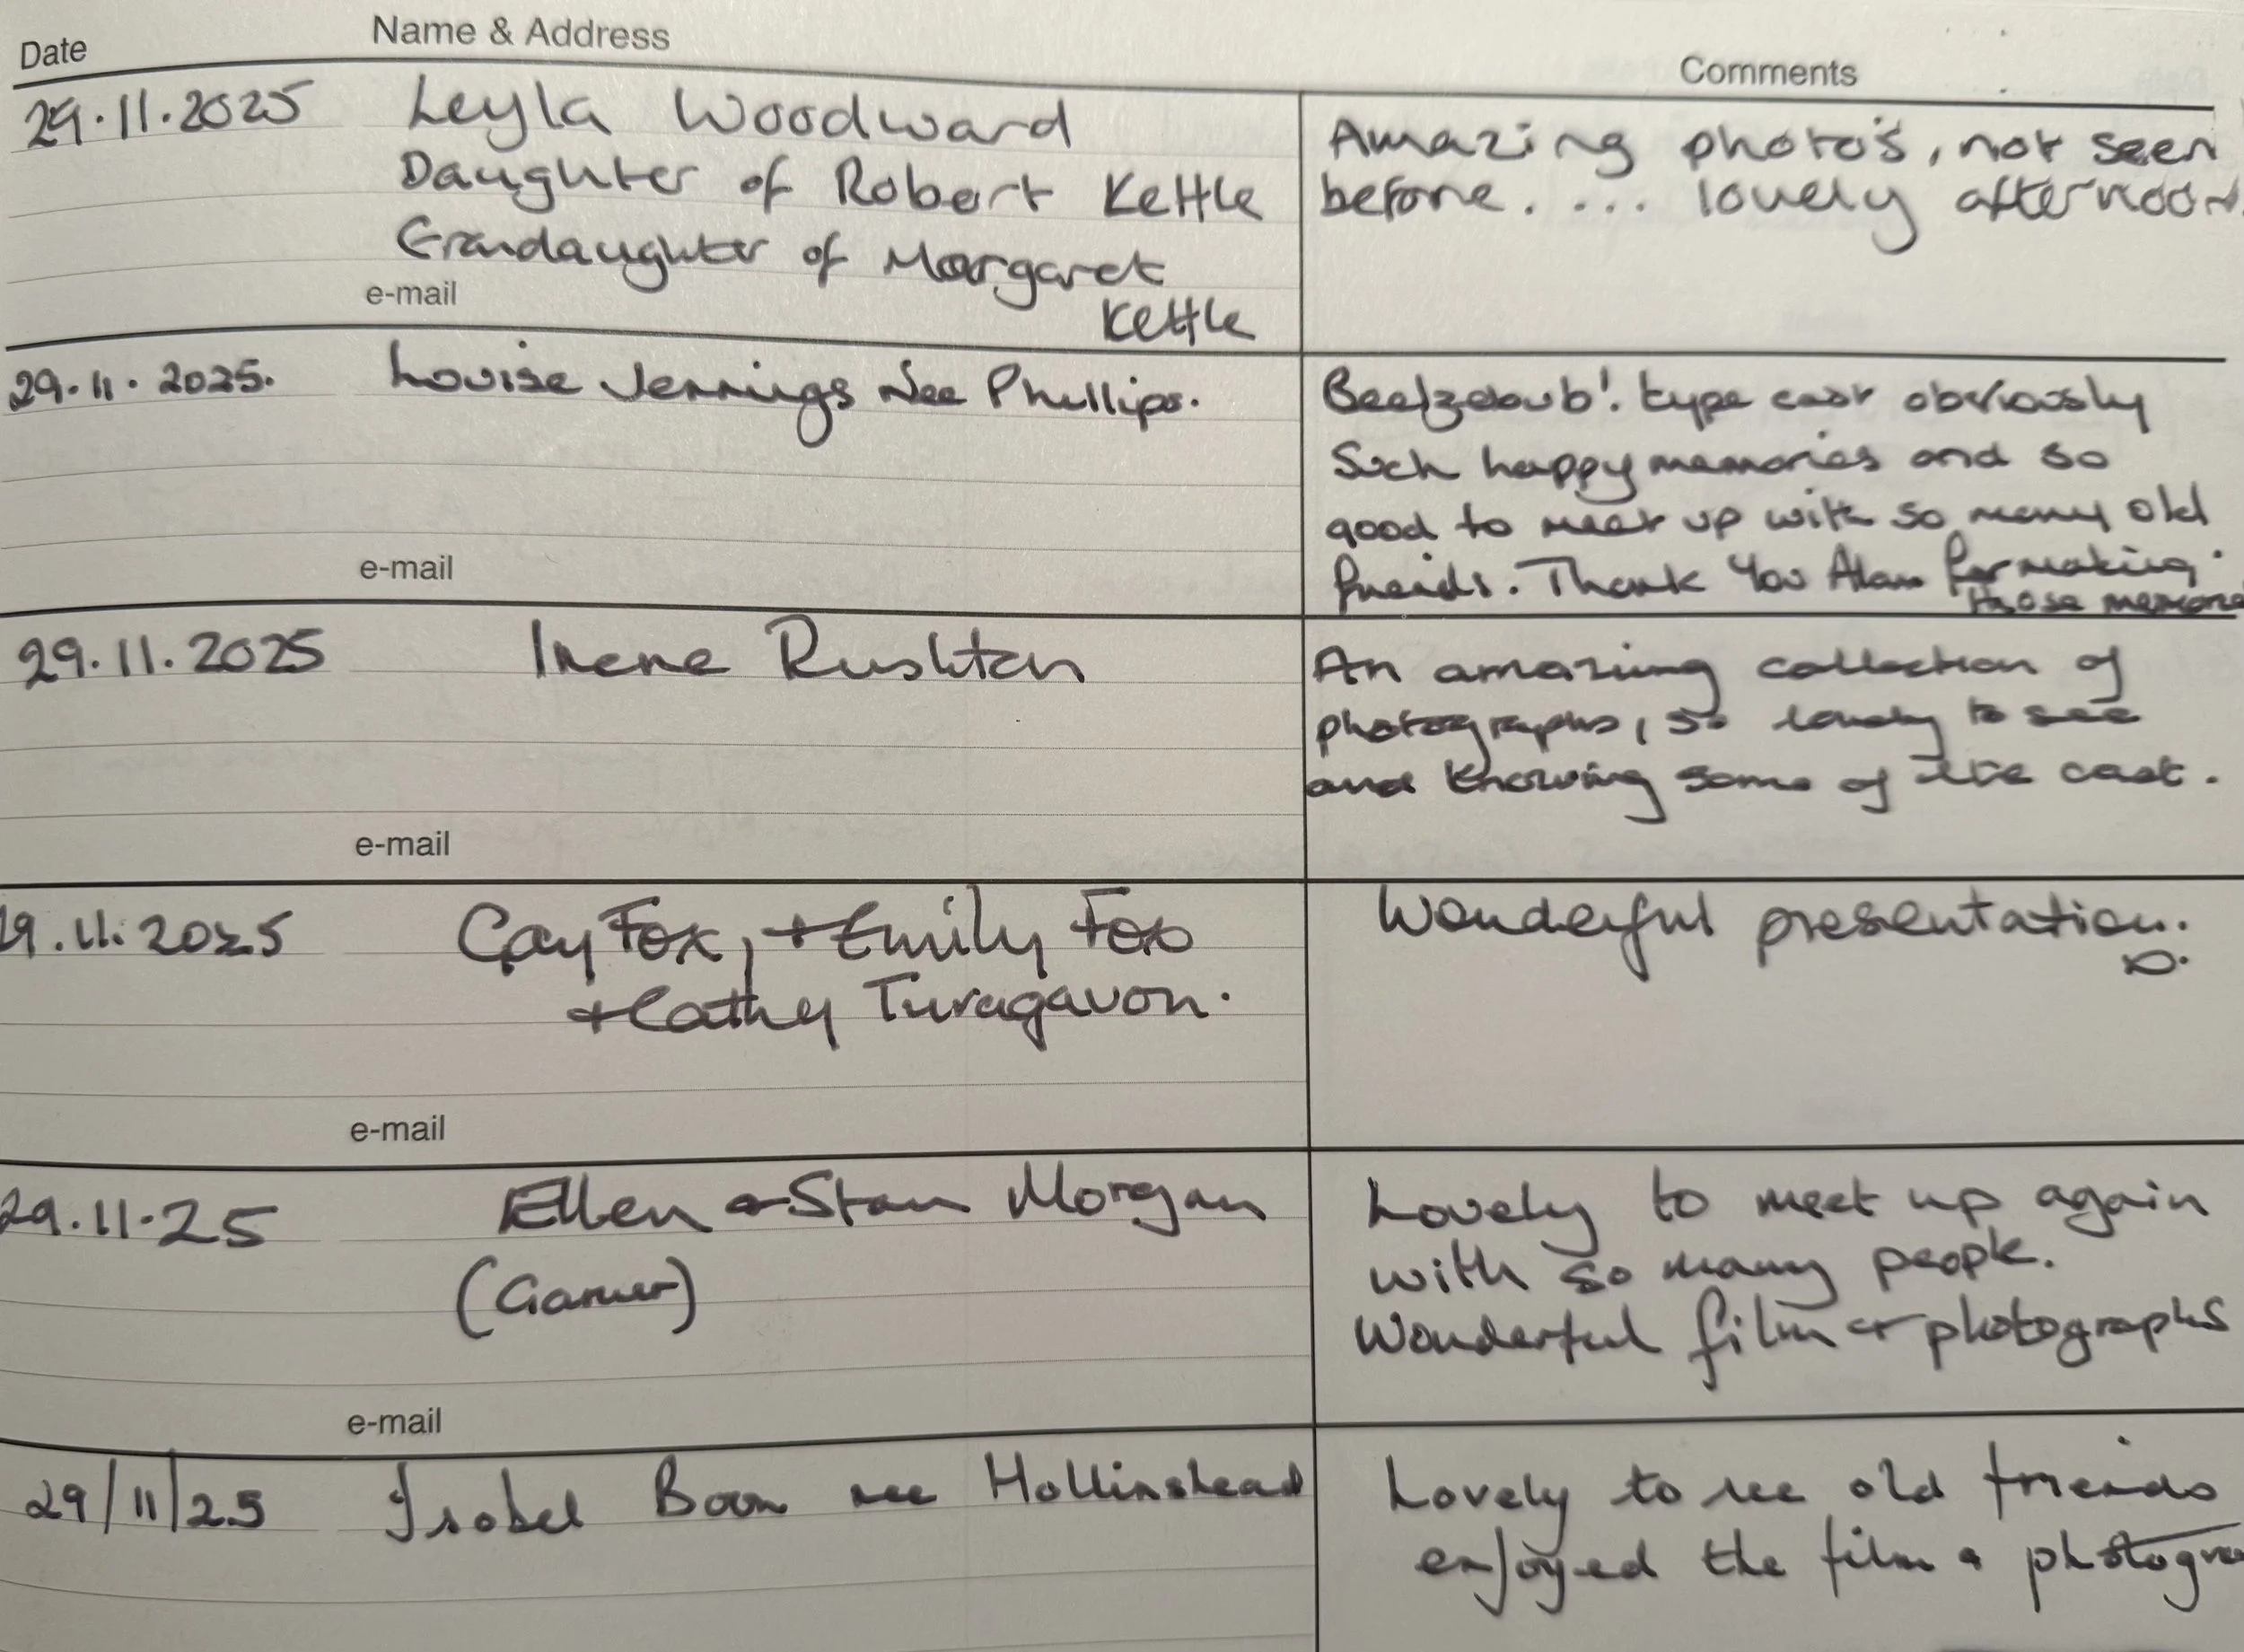 Date Name & Address Comments
29.11.2025 Leyla Woodward
Daughter of Robert Kettle
Grandaughter of Margaret
Kettle
Amazing photo's, not seen
before. ... lovely afternoon
e-mail
29.11.2025. Louise Jennings Nee Phillips.
Beelzebub! type cast obviously
Such happy memories and so
good to meet up with so many old
friends. Thank You Alan for making
those
e-mail
29.11.2025 Irene Rushton
An amazing collection of
photographs, so lovely to see
and knowing some of the cast.
e-mail
29.11.2025 Fox, + Emily Fox
+ Cathy
Wonderful presentation.
e-mail
29.11.25 Ellen & Stan Morgan
(Garner)
Lovely to meet up again
with so many people.
Wonderful film + photographs
e-mail
29/11/25 Isobel Boon nee Hollinshead
Lovely to see old friends
enjoyed the film &